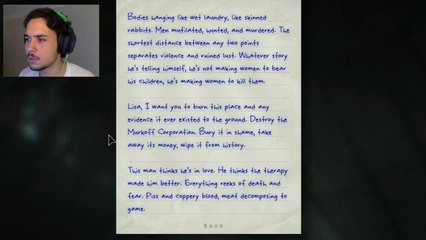 Bodies hanging like wet laundry, like skinned
rabbits. Men mutilated, wanted, and murdered. The
shortest distance between any two points
separates violence and ruined lust. Whatever story
he's telling himself, he's not making women to bear
his children, he's making women to kill them.
Lisa, I want you to burn this place and any
evidence it ever existed to the ground. Destroy the
Murkoff Corporation. Bury it in shame, take
away its money, wipe it from history.
This man thinks he's in love. He thinks the therapy
made him better. Everything reeks of death and
fear. Piss and coppery blood, meat decomposing to
game.
Back